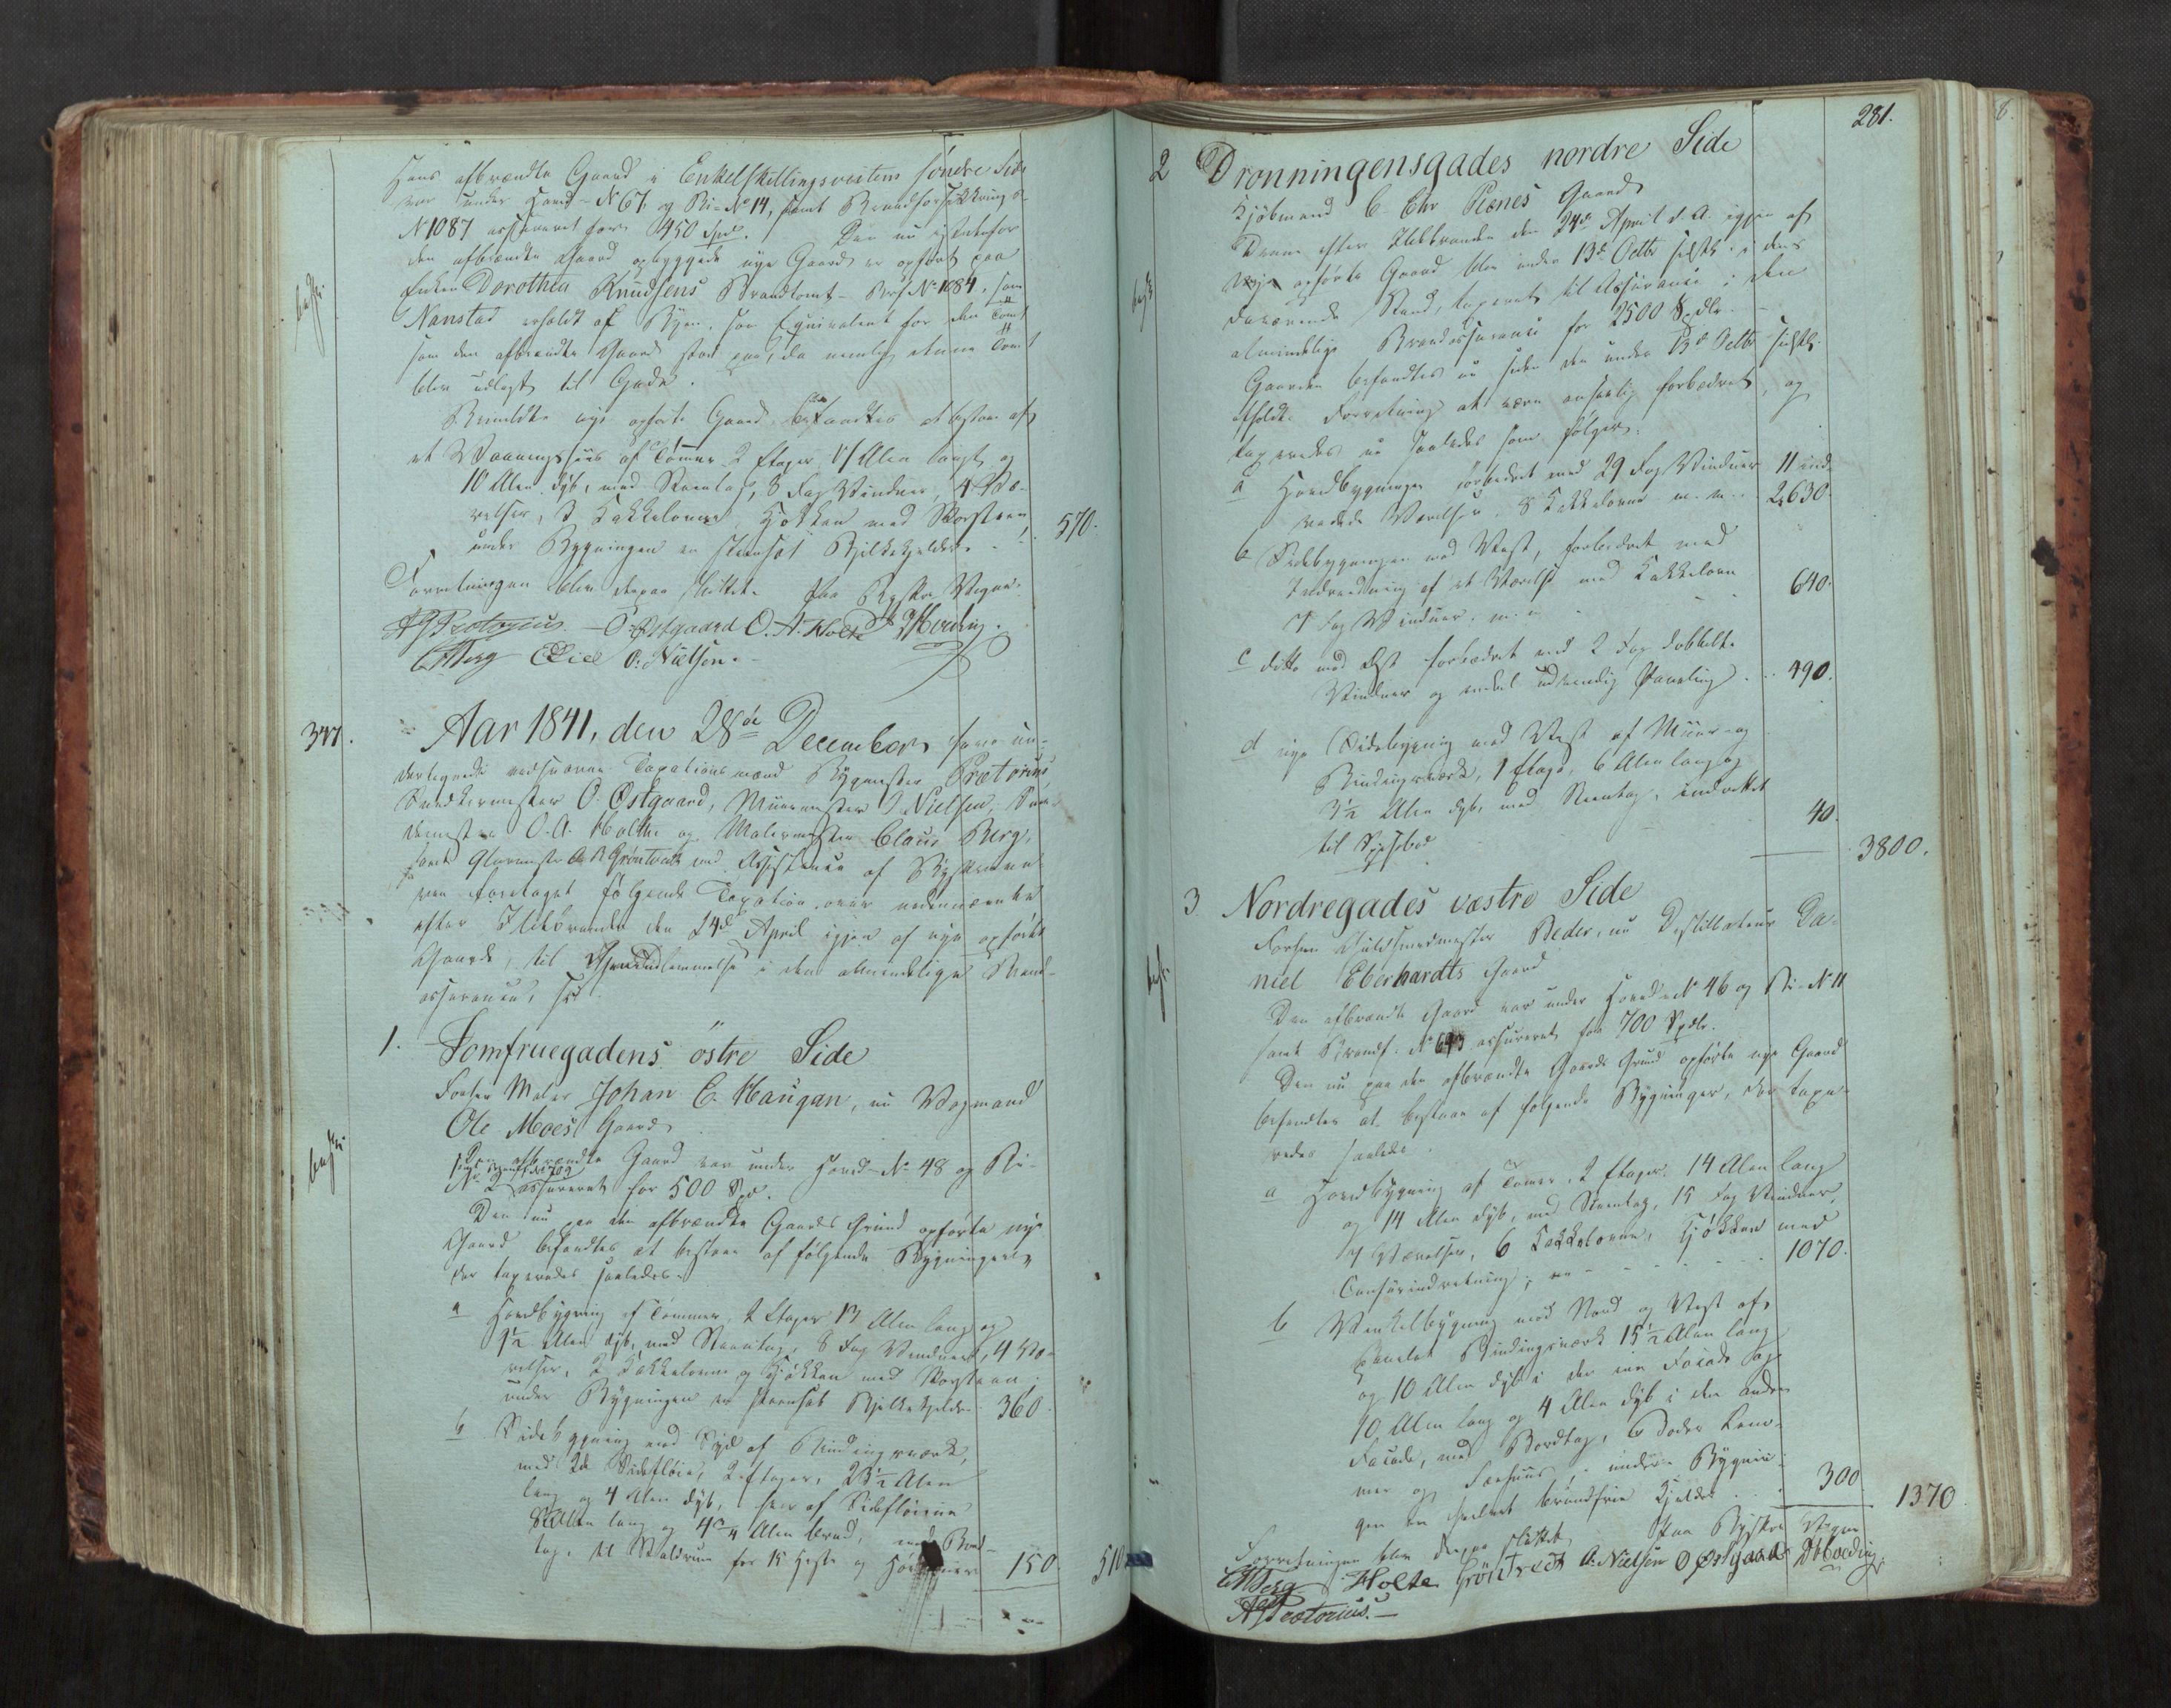 Hans afbrændte Gaard i Enkelskillingsveitens søndre Side
var under Hoved-No 67 og Bi-No 14, samt Brandforsikkrings-
No 1087 assureret for 450 Spd. Den nu istedenfor
den afbrændte Gaard opbyggede nye Gaard er opført paa
Enken Dorothea Knudsens Brandtomt - Brf No 1084, som
Nanstad erholdt af Byen, som Equivalent for den Tomt
som den afbrændte Gaard stod paa, da nemlig denne Tomt
blev udlagt til Gade.
Bemeldte nye opførte Gaard befandtes at bestaae af
et Vaaningshuus af Tømmer 2 Etager Alen langt og
10 Alen dyb, med Steentag, 8 Fag Vinduer, 4 Væ-
relser, 3 Kakkelovne Kjøkken med Skorsteen
under Bygningen en steensat Bjelkekjelder. - 570.
Forretningen blev derpaa sluttet. Paa Byskr. Vegne.
Prætorius - O. Østgaard O. A. Holte Hveding.
C. Berg O. Nielsen.
347.
Aar 1841, den 28de December have un-
dertegnede edsvorne Taxationsmænd Bygmester Prætorius,
Snedkermester O. Østgaard, Muurmester O. Nielsen, Smed-
demester O. A. Holthe og Malermester Claus Berg,
samt Glarmester Grøntvedt med Assistence af Byskriveren
foretaget følgende Taxation over nedennævnte
efter Ildebranden den 24de April igjen af nye opførte
Gaarde, til Indlemmelse i den almindelige Brand-
assurance,
1. Jomfruegadens östre Side
Forhen Maler Johan C. Haugan, nu Vognmand
Ole Moes Gaard
Den afbrændte Gaard var under Hoved-No 48 og Bi-
samt Brandf. No 709
No 2 assureret for 500 Spd.
Den nu paa den afbrændte Gaards Grund opførte nye
Gaard befandtes at bestaae af følgende Bygninger,
der taxeredes saaledes.
a Hovedbygning af Tømmer, 2 Etager 13 Alen lang og
9½ Alen dyb, med Steentag, 8 Fag Vinduer, 4 Væ-
relser, 2 Kakkelovne og Kjøkken med Skorsteen;
under Bygningen en steensat Bjelkekjelder 360.
b Sidebygning mod Syd af Bindingsværk,
med 2de Sidefløie, 2 Etager, 23½ Alen
lang og 4 Alen dyb, hver af Sidefløiene
8 Alen lang og 4¾ Alen bred, med Bord-
tag, til Staldrum for 15 Heste og 150 510
281.
2 Dronningensgades nordre Side
Kjöbmand C. Chr Plenes Gaard
Denne efter Ildebranden den 24de April d. A. igjen af
Nye opførte Gaard blev under 13de Octbr sidstl. i dens
daværende Stand, taxeret til Assurance i den
almindelige Brandassurance for 2500 Spdlr.
Gaarden befandtes nu siden den under 13de Octbr sidstl.
afholdte Forretning at være anseelig forbedret, og
taxeredes nu saaledes som følger.
a Hovedbygningen forbedret med 29 Fag Vinduer 11 ind-
redede Værelser 8 Kakkelovne m. m. 2630.
b Sidebygningen mod Vest, forbedret med
Indredning af et Værelse med Kakkelovn
7 Fag Vinduer m. m. 640.
c ditto mod Øst forbedret med 2 Fag dobbelte
Vinduer og endeel udvendig Paneling 490.
d nye Sidebygning mod Vest af Muur- og
Bindingsværk, 1 Etage, 6 Alen lang og
3½ Alen dyb, med Steentag, indrettet
til Spisebod 40.
3800.
3. Nordregades vestre Side
Forhen Guldsmedmester Beder, nu Destillateur Da-
niel Eberhardts Gaard
Den afbrændte Gaard var under Hoved-No 46 og Bi-No 11
samt Brandf. No 643 assureret for 700 Spdlr.
Den nu paa den afbrændte Gaards Grund opførte nye Gaard
befandtes at bestaae af følgende Bygninger, der taxe-
redes saaledes.
a Hovedbygning af Tømmer, 2 Etager 14 Alen lang
og 14 Alen dyb, med Steentag, 15 Fag Vinduer,
7 Værelser, 6 Kakkelovne, Kjøkken med
Comfurindretning, 1070.
b Vinkelbygning mod Nord og Vest af
panelet Bindingsværk 15½ Alen lang
og 10 Alen dyb i den ene Facade og
10 Alen lang og 4 Alen dyb i den anden
Facade, med Bordtag,
mer og Fæehuus; under Bygnin-
gen en hvelvet brandfrie Kjelder 300 1370
Forretningen blev derpaa sluttet Paa Byskr. Vegne
C. Berg. Holte Grøntvedt O. Nielsen O Østgaard Hveding.
Prætorius. -